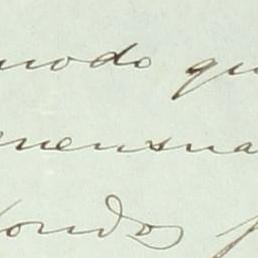 modo qu
mensua
fondos